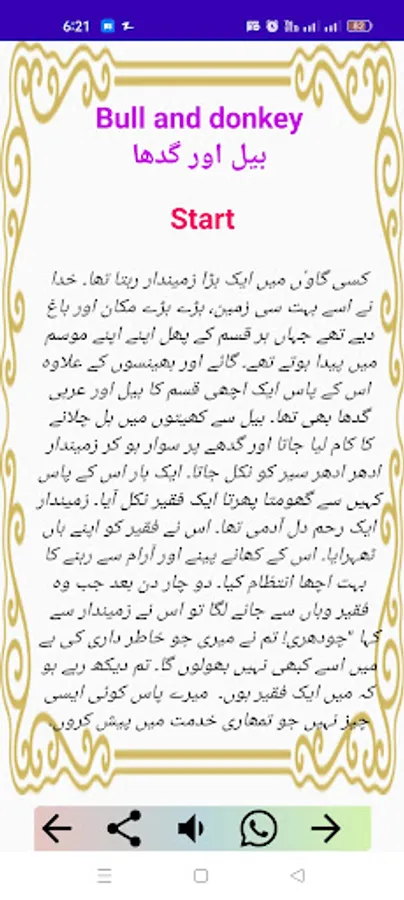 6:21
Bull and donkey
بیل اور گدھا
Start
کسی گاوٗں میں ایک بڑا زمیندار رہتا تھا۔ خدا
نے اسے بہت سی زمین، بڑے بڑے مکان اور باغ
دیے تھے جہاں ہر قسم کے پھل اپنے اپنے موسم
میں پیدا ہوتے تھے۔ گائے اور بھینسوں کے علاوہ
اس کے پاس ایک اچھی قسم کا بیل اور عربی
گدھا بھی تھا۔ بیل سے کھیتوں میں ہل چلانے
کا کام لیا جاتا اور گدھے پر سوار ہو کر زمیندار
ادھر ادھر سیر کو نکل جاتا۔ ایک بار اس کے پاس
کہیں سے گھومتا پھرتا ایک فقیر نکل آیا۔ زمیندار
ایک رحم دل آدمی تھا۔ اس نے فقیر کو اپنے ہاں
ٹھہرایا۔ اس کے کھانے پینے اور آرام سے رہنے کا
بہت اچھا انتظام کیا۔ دو چار دن بعد جب وہ
فقیر وہاں سے جانے لگا تو اس نے زمیندار سے
کہا "چودھری! تم نے میری جو خاطر داری کی ہے
میں اسے کبھی نہیں بھولوں گا۔ تم دیکھ رہے ہو
کہ میں ایک فقیر ہوں۔ میرے پاس کوئی ایسی
چیز نہیں جو تمھاری خدمت میں پیش کروں۔